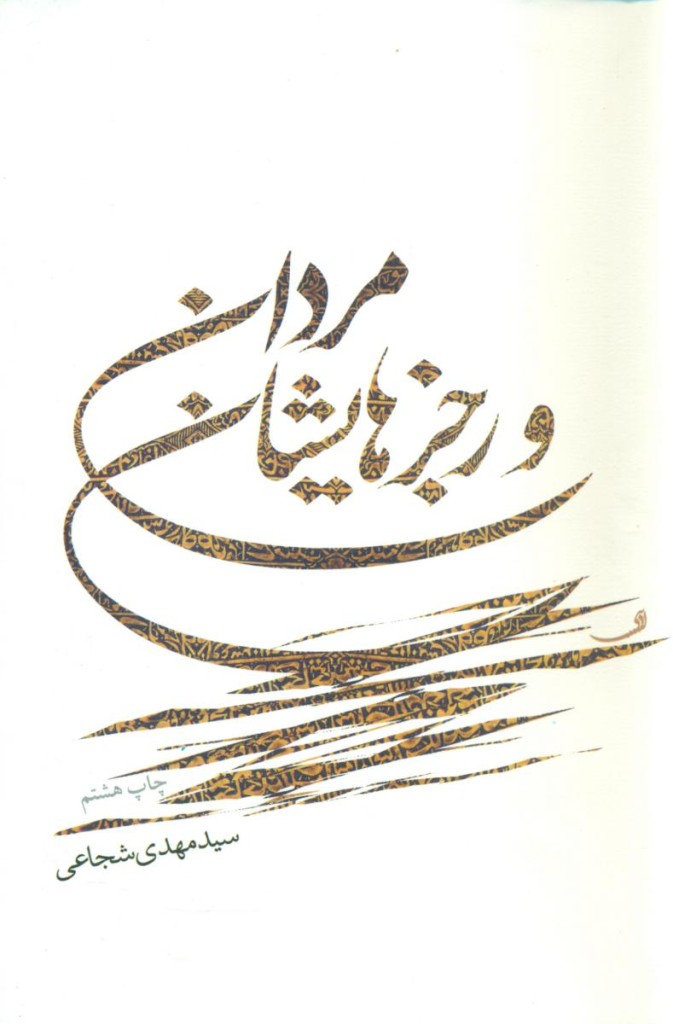 مردان
و رجزهایشان
چاپ هشتم
سیدمهدی شجاعی